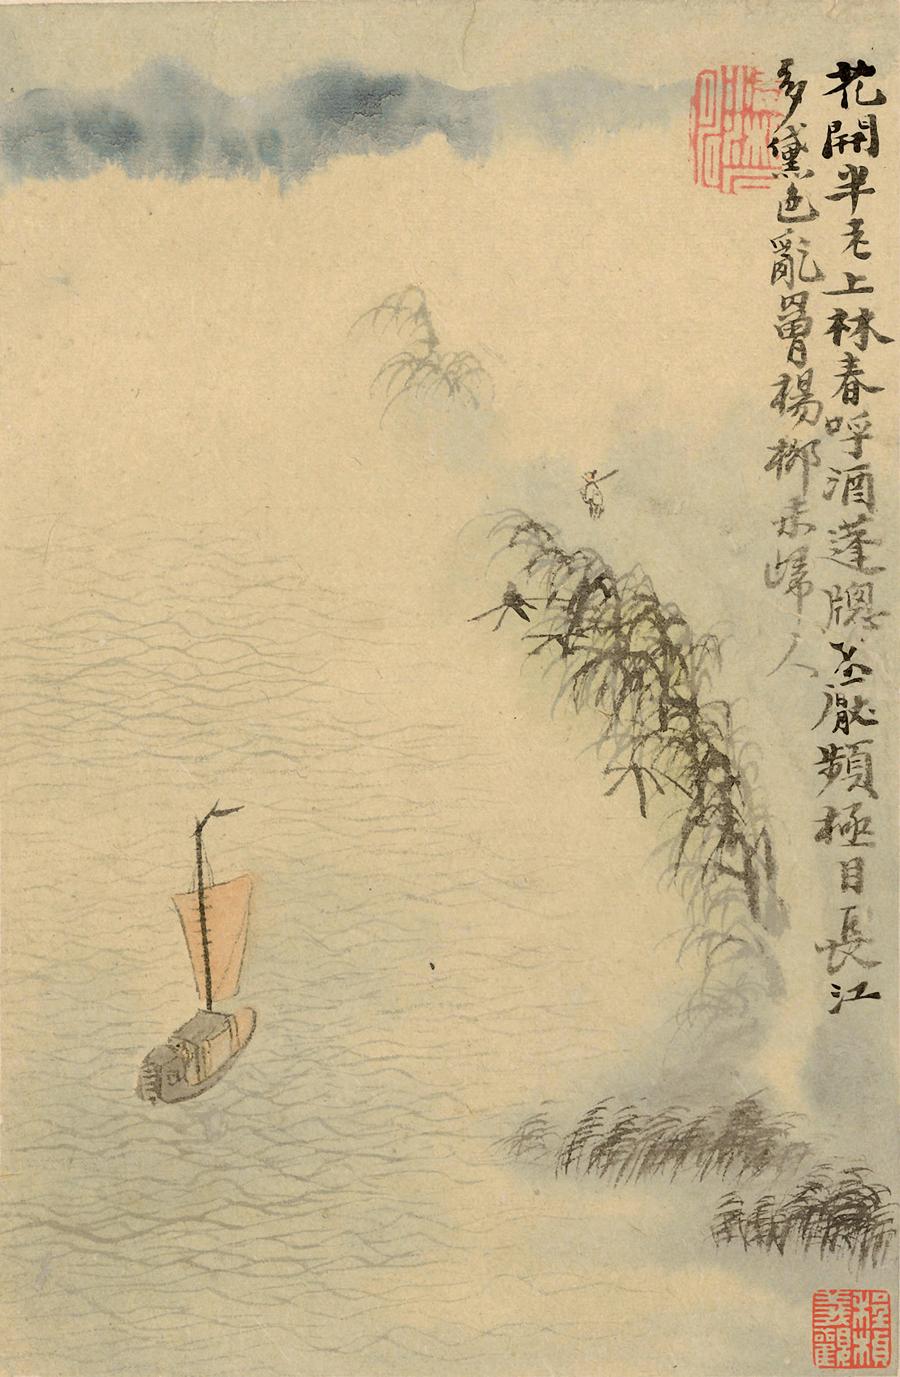 花開半老上林春呼酒蓬牕厭頻極目長江
多黛色亂罾楊柳未歸人
程楨
義觀